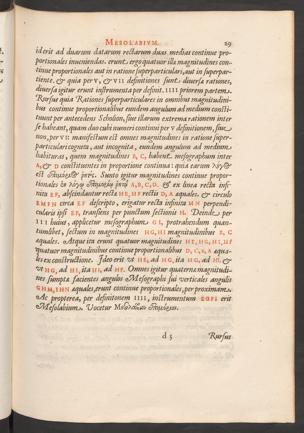 MESOLABIVM. 29
iderit ad duarum datarum rectarum duas medias continue pro-
portionales inueniendas. erunt ergo quatuor illæ magnitudines con-
tinue proportionales aut in ratione superparticulari, aut in superpar-
tiente. & quia per V, & VII definitiones sunt diuersæ rationes,
diuersa igitur erunt instrumenta per definit. IIII priorem partem.
Rursus quia Rationes superparticulares in omnibus magnitudini-
bus continue proportionalibus eundem angulum ad medium consti-
tuunt per antecedens Scholion, siue illarum extrema rationem inter
se habeant, quam duo cubi numeri continui per V definitionem, siue
non, per VI: manifestum est omnes magnitudines in ratione super-
particulari cognita, aut incognita, eundem angulum ad medium
habituras, quem magnitudines B, C, habent. mesographum inter
A, & D constituentes in proportione continua: quia earum
est Sunto igitur magnitudines continue propor-
tionales A, B, C, D. & ex linea recta infi-
nita EF, abscindantur rectæ HE, HF rectis D, A æquales. & circulo
EMFN circa EF descripto, erigatur recta infinita MN perpendi-
cularis ipsi EF, transiens per punctum sectionis H. Deinde per
III huius, applicetur mesographum GI, protrahendum quan-
tumlibet, sectum in magnitudines HG, HI magnitudinibus B, C
æquales. Atque ita erunt quatuor magnitudines HE, HG, HI, HF
quatuor magnitudinibus continue proportionalibus D, C, B, A æqua-
les ex constructione. Ideo erit vt HE, ad HG, ita HG, ad HI, &
vt HG, ad HI, ita HI, ad HF. Omnes igitur quaternæ magnitudi-
nes sumpta facientes angulos Mesographi sui verticales angulis
GHM, IHN æquales, erunt continue proportionales, per proximam.
Ac propterea, per definitionem IIII, instrumentum EGFI erit
Mesolabium. Vocetur
d 3 Rursus